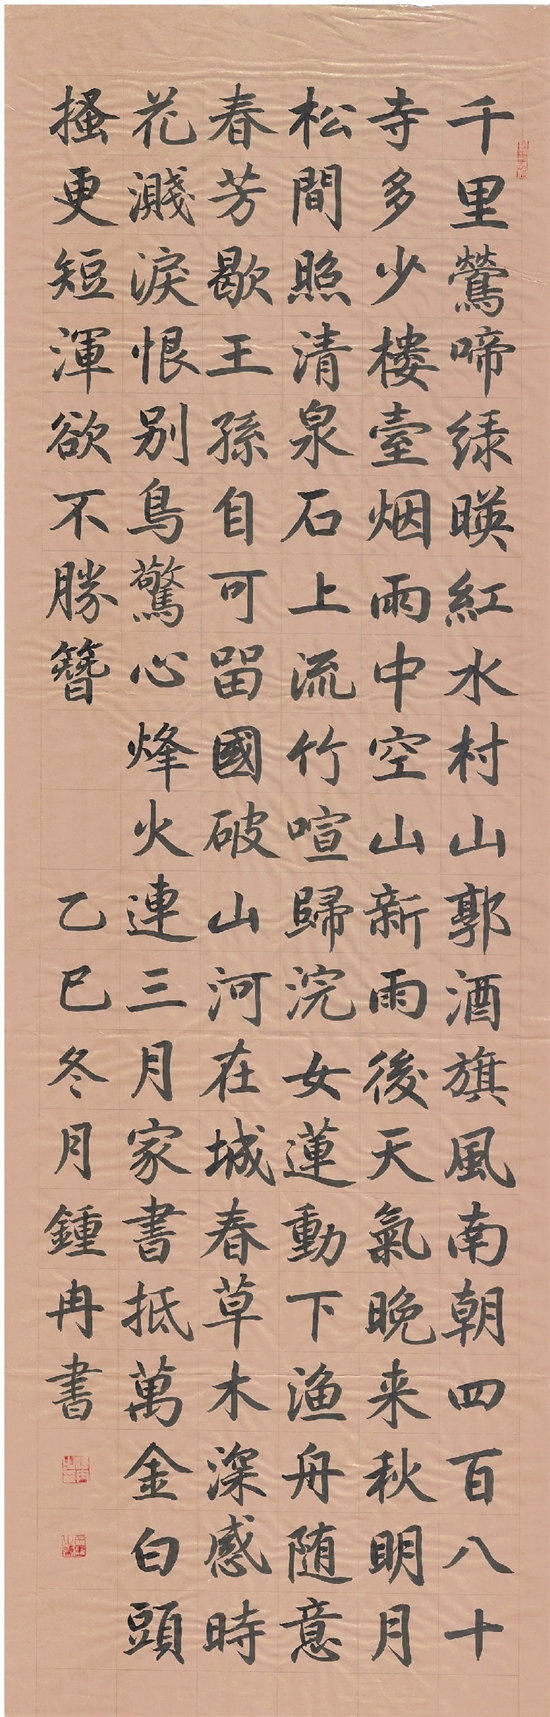 千里鶯啼緑暎紅水村山郭酒旗風南朝四百八十
寺多少樓臺烟雨中空山新雨後天氣晚来秋明月
松間照清泉石上流竹喧歸浣女蓮動下渔舟随意
春芳歇王孫自可留國破山河在城春草木深感時
花濺淚恨别鳥驚心烽火連三月家書抵萬金白頭
搔更短渾欲不勝簪 乙巳冬月鍾冉書